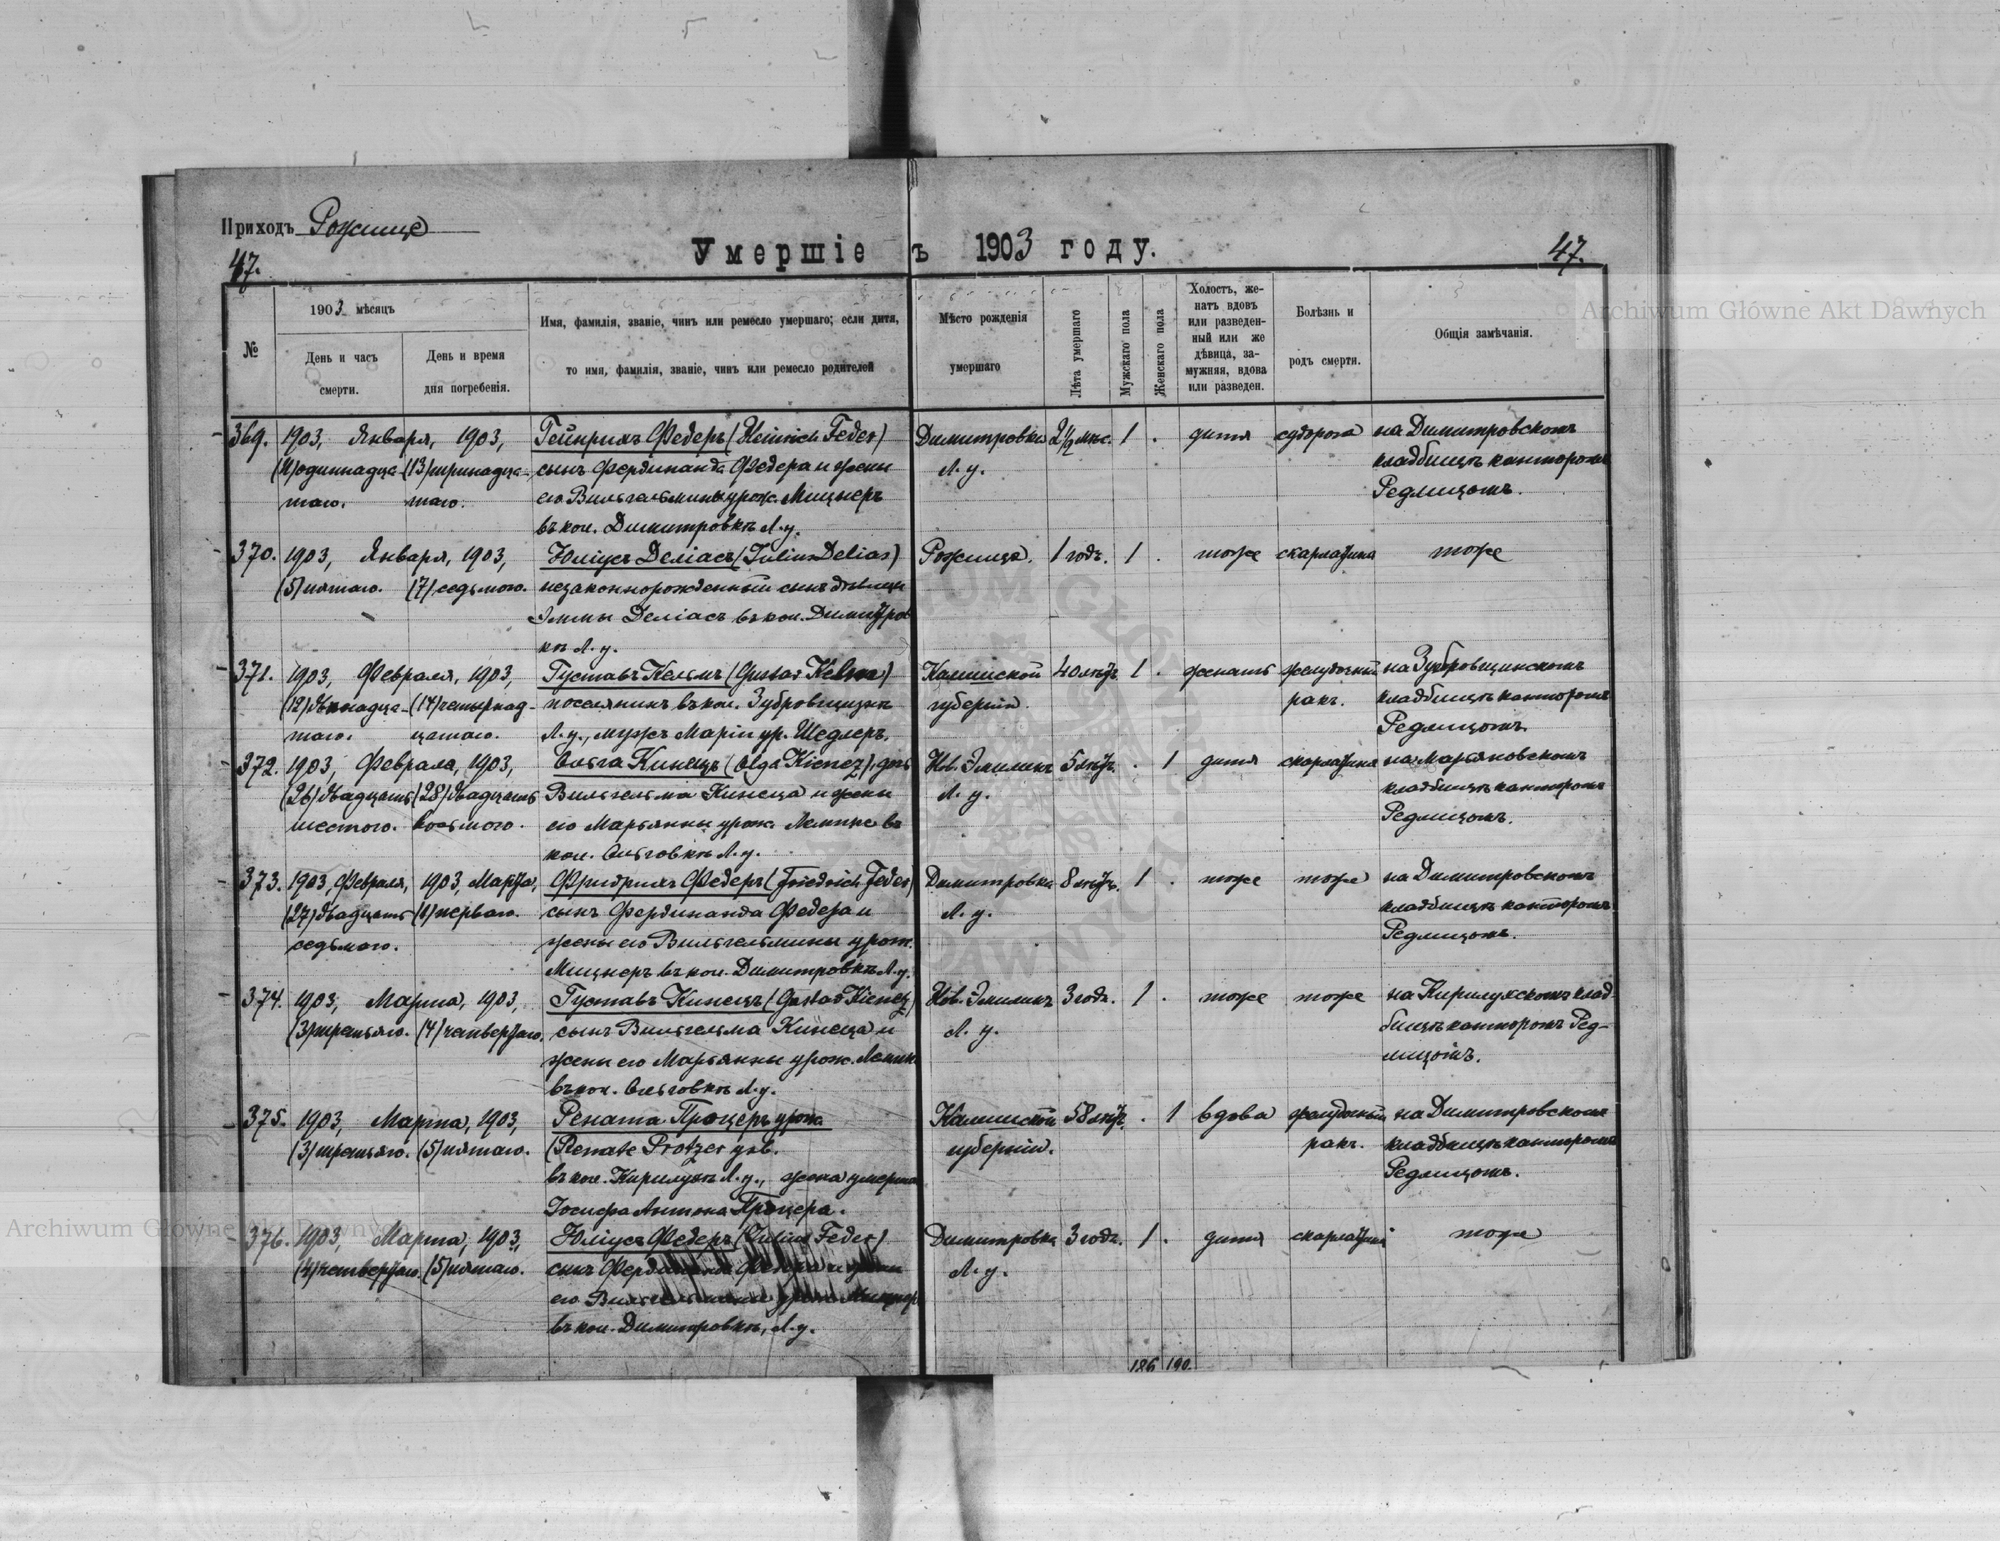 Приходъ Рожище
Умершіе въ 1903 году.
47.
47.
№
1903 мѣсяцъ
День и часъ смерти.
День и время дня погребенія.
Имя, фамилія, званіе, чинъ или ремесло умершаго; если дитя,
то имя, фамилія, званіе, чинъ или ремесло родителей
Мѣсто рожденія
умершаго
Лѣта умершаго
Мужскаго пола
Женскаго пола
Холостъ, же-
натъ вдовъ
или разведен-
ный или же
дѣвица, за-
мужняя, вдова
или разведен.
Болѣзнь и
родъ смерти.
Общія замѣчанія.
369. 1903, Января, 1903, Гейнрихъ Федеръ (Heinrich Feder) Димитровка 2½ мѣс. 1 . дитя судорога на Димитровскомъ
(11) одиннадца- (13) тринадца- сынъ Фердинанда Федера и жены Л. у. кладбищѣ канторомъ
таго. таго. его Вильгельмины урож. Мицнеръ Редлицомъ.
въ кол. Димитровкѣ Л. у.
370. 1903, Января, 1903, Юліусъ Деліасъ (Julius Delias) Рожище. 1 годъ. 1 . тоже скарлатина тоже
(5) пятаго. (7) седьмого. незаконнорожденный сынъ дѣвицы
Эммы Деліасъ въ кол. Димитров
кѣ Л. у.
371. 1903, Февраля, 1903, Густавъ Кельмъ (Gustav Kelm) Калишской 40 лѣтъ. 1 . женатъ желудочный на Зубровщинскомъ
(12) двѣнадца- (14) четырнад- поселянинъ въ кол. Зубровщинѣ губерніи. ракъ. кладбищѣ канторомъ
таго. цатаго. Л. у., мужъ Маріи ур. Шедлеръ. Редлицомъ.
372. 1903, Февраля, 1903, Ольга Кинецъ (Olga Kienez), дочь Нов. Эмилинъ 5 лѣтъ. . 1 дитя скарлатина на Марьяновскомъ
(26) двадцать (28) двадцать Вильгельма Кинеца и жены Л. у. кладбищѣ канторомъ
шестого. восьмого. его Марьянны урож. въ Редлицомъ.
кол. Ольговкѣ Л. у.
373. 1903, Февраля, 1903, Марта, Фридрихъ Федеръ (Friedrich Feder) Димитровка 8 лѣтъ. 1 . тоже тоже на Димитровскомъ
(27) двадцать (1) перваго. сынъ Фердинанда Федера и Л. у. кладбищѣ канторомъ
седьмого. жены его Вильгельмины урож. Редлицомъ.
Мицнеръ въ кол. Димитровкѣ Л. у.
374. 1903, Марта, 1903, Густавъ Кинецъ (Gustav Kienez) Нов. Эмилинъ 3 года. 1 . тоже тоже на Кирилукскомъ клад-
(3) третьяго. (4) четвертаго. сынъ Вильгельма Кинеца и Л. у. бищѣ канторомъ Ред-
жены его Марьянны урож. лицомъ.
въ кол. Ольговкѣ Л. у.
375. 1903, Марта, 1903, Рената Процеръ урож. Калишской 58 лѣтъ. . 1 вдова желудочный на Димитровскомъ
(3) третьяго. (5) пятаго. (Renate Protzer губерніи. ракъ. кладбищѣ канторомъ
въ кол. Кирилукѣ Л. у., жена умерша Редлицомъ.
Іосифа Антона Процера.
376. 1903, Марта, 1903, Юліусъ Федеръ (Julius Feder) Димитровка 3 года. 1 . дитя скарлатина тоже
(4) четвертаго. (5) пятаго. сынъ Фердинанда Федера и жены Л. у.
его Вильгельмины урож. Мицнеръ
въ кол. Димитровкѣ, Л. у.
186 190.
Archiwum Główne Akt Dawnych
Archiwum Główne Akt Dawnych